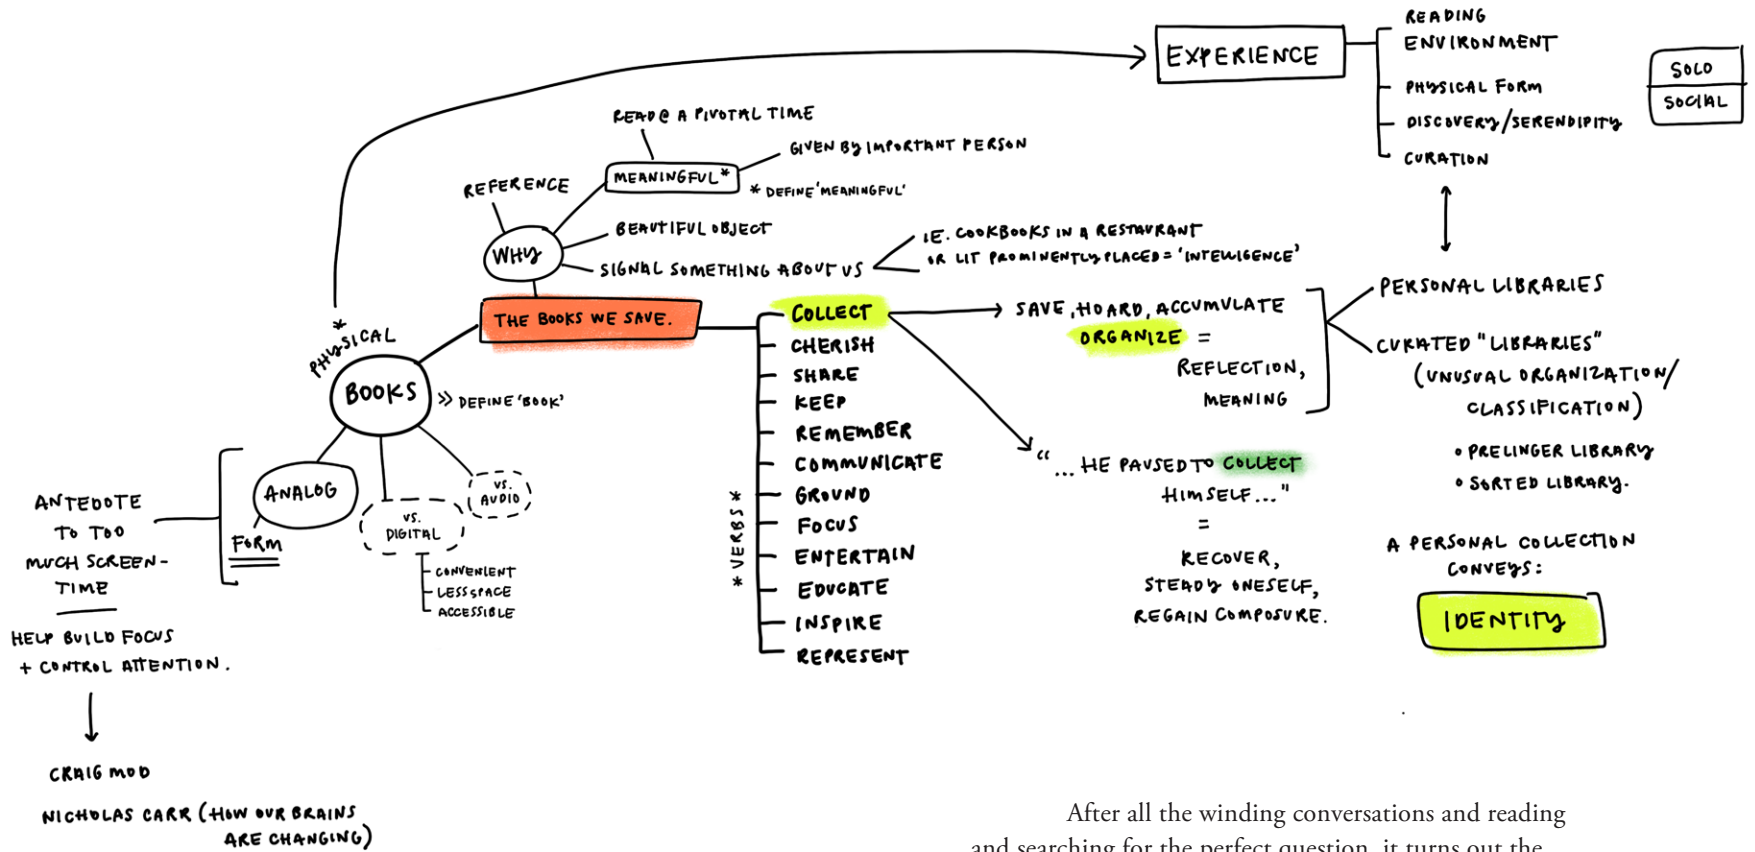 EXPERIENCE
READING
ENVIRONMENT
PHYSICAL FORM
DISCOVERY/SERENDIPITY
CURATION
SOLO
SOCIAL
READ @ A PIVOTAL TIME
GIVEN BY IMPORTANT PERSON
MEANINGFUL*
* DEFINE 'MEANINGFUL'
REFERENCE
WHY
BEAUTIFUL OBJECT
SIGNAL SOMETHING ABOUT US
IE. COOKBOOKS IN A RESTAURANT
OR LIT PROMINENTLY PLACED = 'INTELLIGENCE'
THE BOOKS WE SAVE.
* PHYSICAL
BOOKS
>> DEFINE 'BOOK'
ANALOG
FORM
VS.
DIGITAL
CONVENIENT
LESS SPACE
ACCESSIBLE
VS.
AUDIO
ANTEDOTE
TO TOO
MUCH SCREEN-
TIME
HELP BUILD FOCUS
+ CONTROL ATTENTION.
CRAIG MOD
NICHOLAS CARR (HOW OUR BRAINS
ARE CHANGING)
* VERBS *
COLLECT
CHERISH
SHARE
KEEP
REMEMBER
COMMUNICATE
GROUND
FOCUS
ENTERTAIN
EDUCATE
INSPIRE
REPRESENT
SAVE, HOARD, ACCUMULATE
ORGANIZE =
REFLECTION,
MEANING
"... HE PAUSED TO COLLECT
HIMSELF..."
=
RECOVER,
STEADY ONESELF,
REGAIN COMPOSURE.
PERSONAL LIBRARIES
CURATED "LIBRARIES"
(UNUSUAL ORGANIZATION/
CLASSIFICATION)
• PRELINGER LIBRARY
• SORTED LIBRARY.
A PERSONAL COLLECTION
CONVEYS:
IDENTITY
After all the winding conversations and reading
and searching for the perfect question, it turns out the